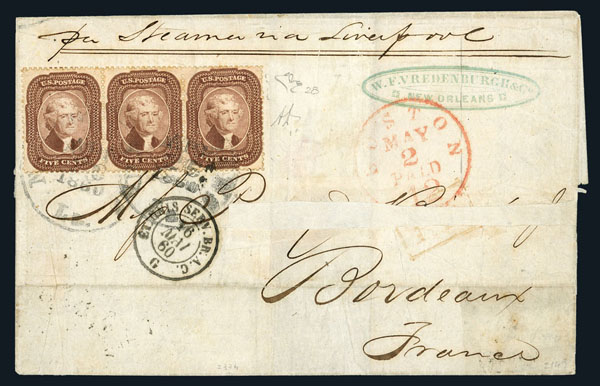 per Steamer via Liverpool
U.S. POSTAGE
FIVE CENTS
U.S. POSTAGE
FIVE CENTS
U.S. POSTAGE
FIVE CENTS
28
W. F. VREDENBURGH & Co
NEW ORLEANS
BOSTON
MAY
2
PAID
1860
LA.
ET. UNIS SERV. BR. A. C.
16
MAI
60
G
Bordeaux
France